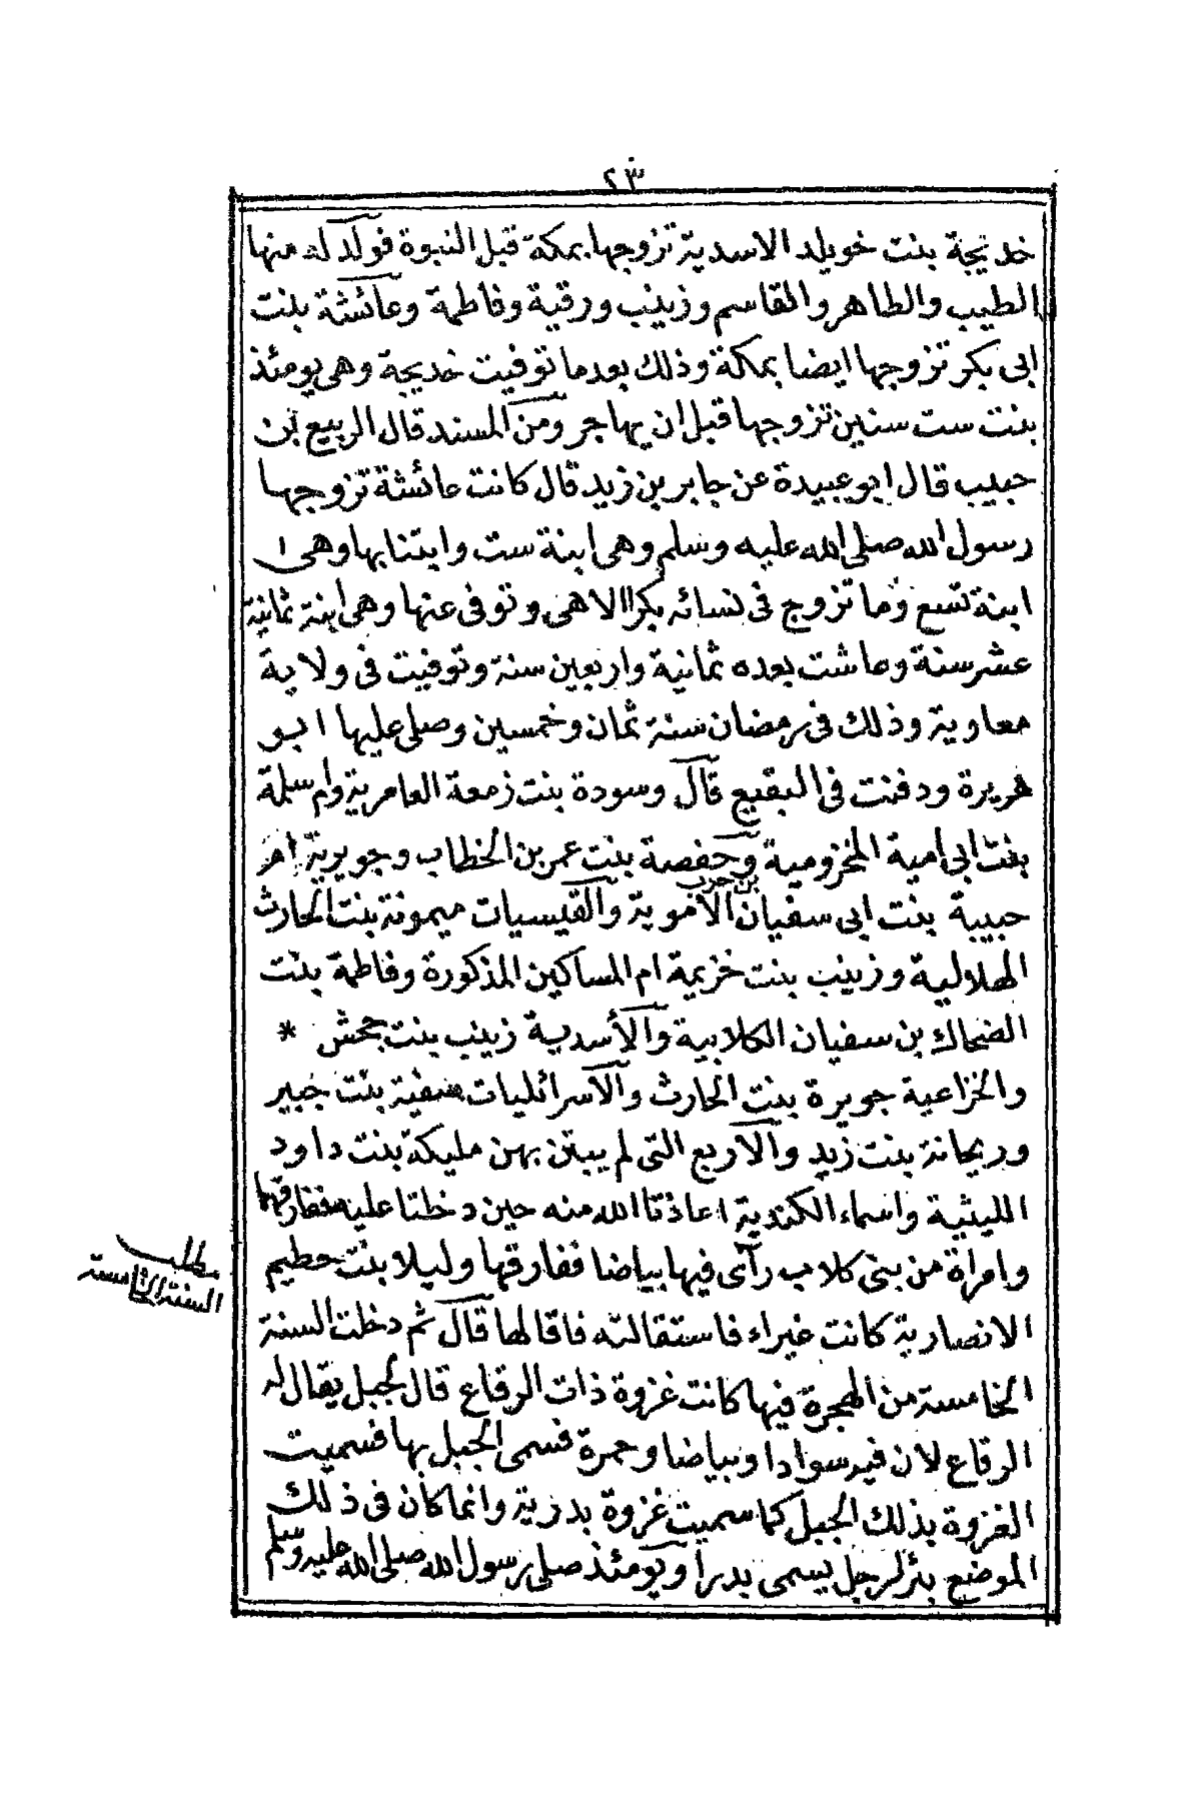 ٢٣
خديجة بنت خويلد الاسدية تزوجها بمكة قبل النبوة فولد له منها
الطيب والطاهر والقاسم وزينب ورقية وفاطمة وعائشة بنت
ابى بكر تزوجها ايضا بمكة وذلك بعدما توفيت خديجة وهى يومئذ
بنت ست سنين تزوجها قبل ان يهاجر ومن المسند قال الربيع بن
حبيب قال ابو عبيدة عن جابر بن زيد قال كانت عائشة تزوجها
رسول الله صلى الله عليه وسلم وهى ابنة ست وابتنا بها وهى ا
ابنة تسع وما تزوج فى نسائه بكرا الا هى وتوفى عنها وهى ابنة ثمانية
عشر سنة وعاشت بعده ثمانية واربعين سنة وتوفيت فى ولاية
معاوية وذلك فى رمضان سنة ثمان وخمسين وصلى عليها ابو
هريرة ودفنت فى البقيع قال وسودة بنت زمعة العامرية وام سلمة
بنت ابى امية المخزومية وحفصة بنت عمر بن الخطاب وجويرية ام
حبيبة بنت ابى سفيان بن حرب الأموية والقيسيات ميمونة بنت الحارث
الهلالية وزينب بنت خزيمة ام المساكين المذكورة وفاطمة بنت
الضحاك بن سفيان الكلابية والأسدية زينب بنت جحش *
والخزاعية جويرة بنت الحارث والآسرائليات صفية بنت جبير
وريحانة بنت زيد والآربع التى لم يبتن بهن مليكة بنت داود
الليثية واسماء الكندية اعاذتا الله منه حين دخلتا عليه ففارقها
وامراة من بنى كلاب رآى فيها بياضا ففارقها وليلا بنت حطيم
الانصارية كانت غيراء فاستقالته فاقالها قال ثم دخلت السنة
الخامسة من الهجرة فيها كانت غزوة ذات الرقاع قال لجبل يقال له
الرقاع لان فيه سوادا وبياضا وحمرة فسمى الجبل بها فسميت
الغزوة بذلك الجبل كما سميت غزوة بدر بزية وانما كان فى ذلك
الموضع بئر لرجل يسمى بدرا ويومئذ صلى رسول الله صلى الله عليه وسلم
مطلب
السنة الخامسة